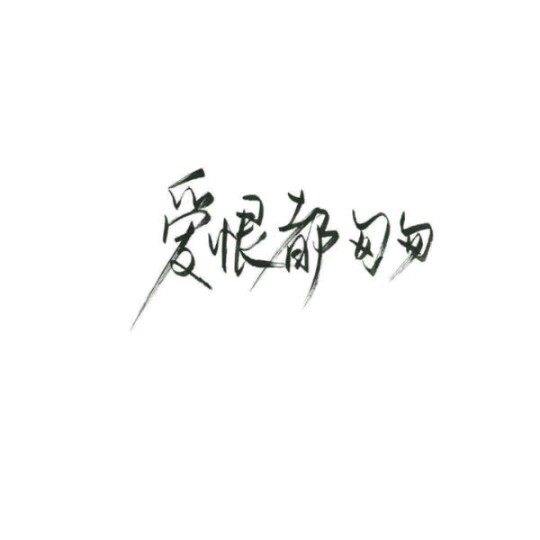 爱恨都匆匆